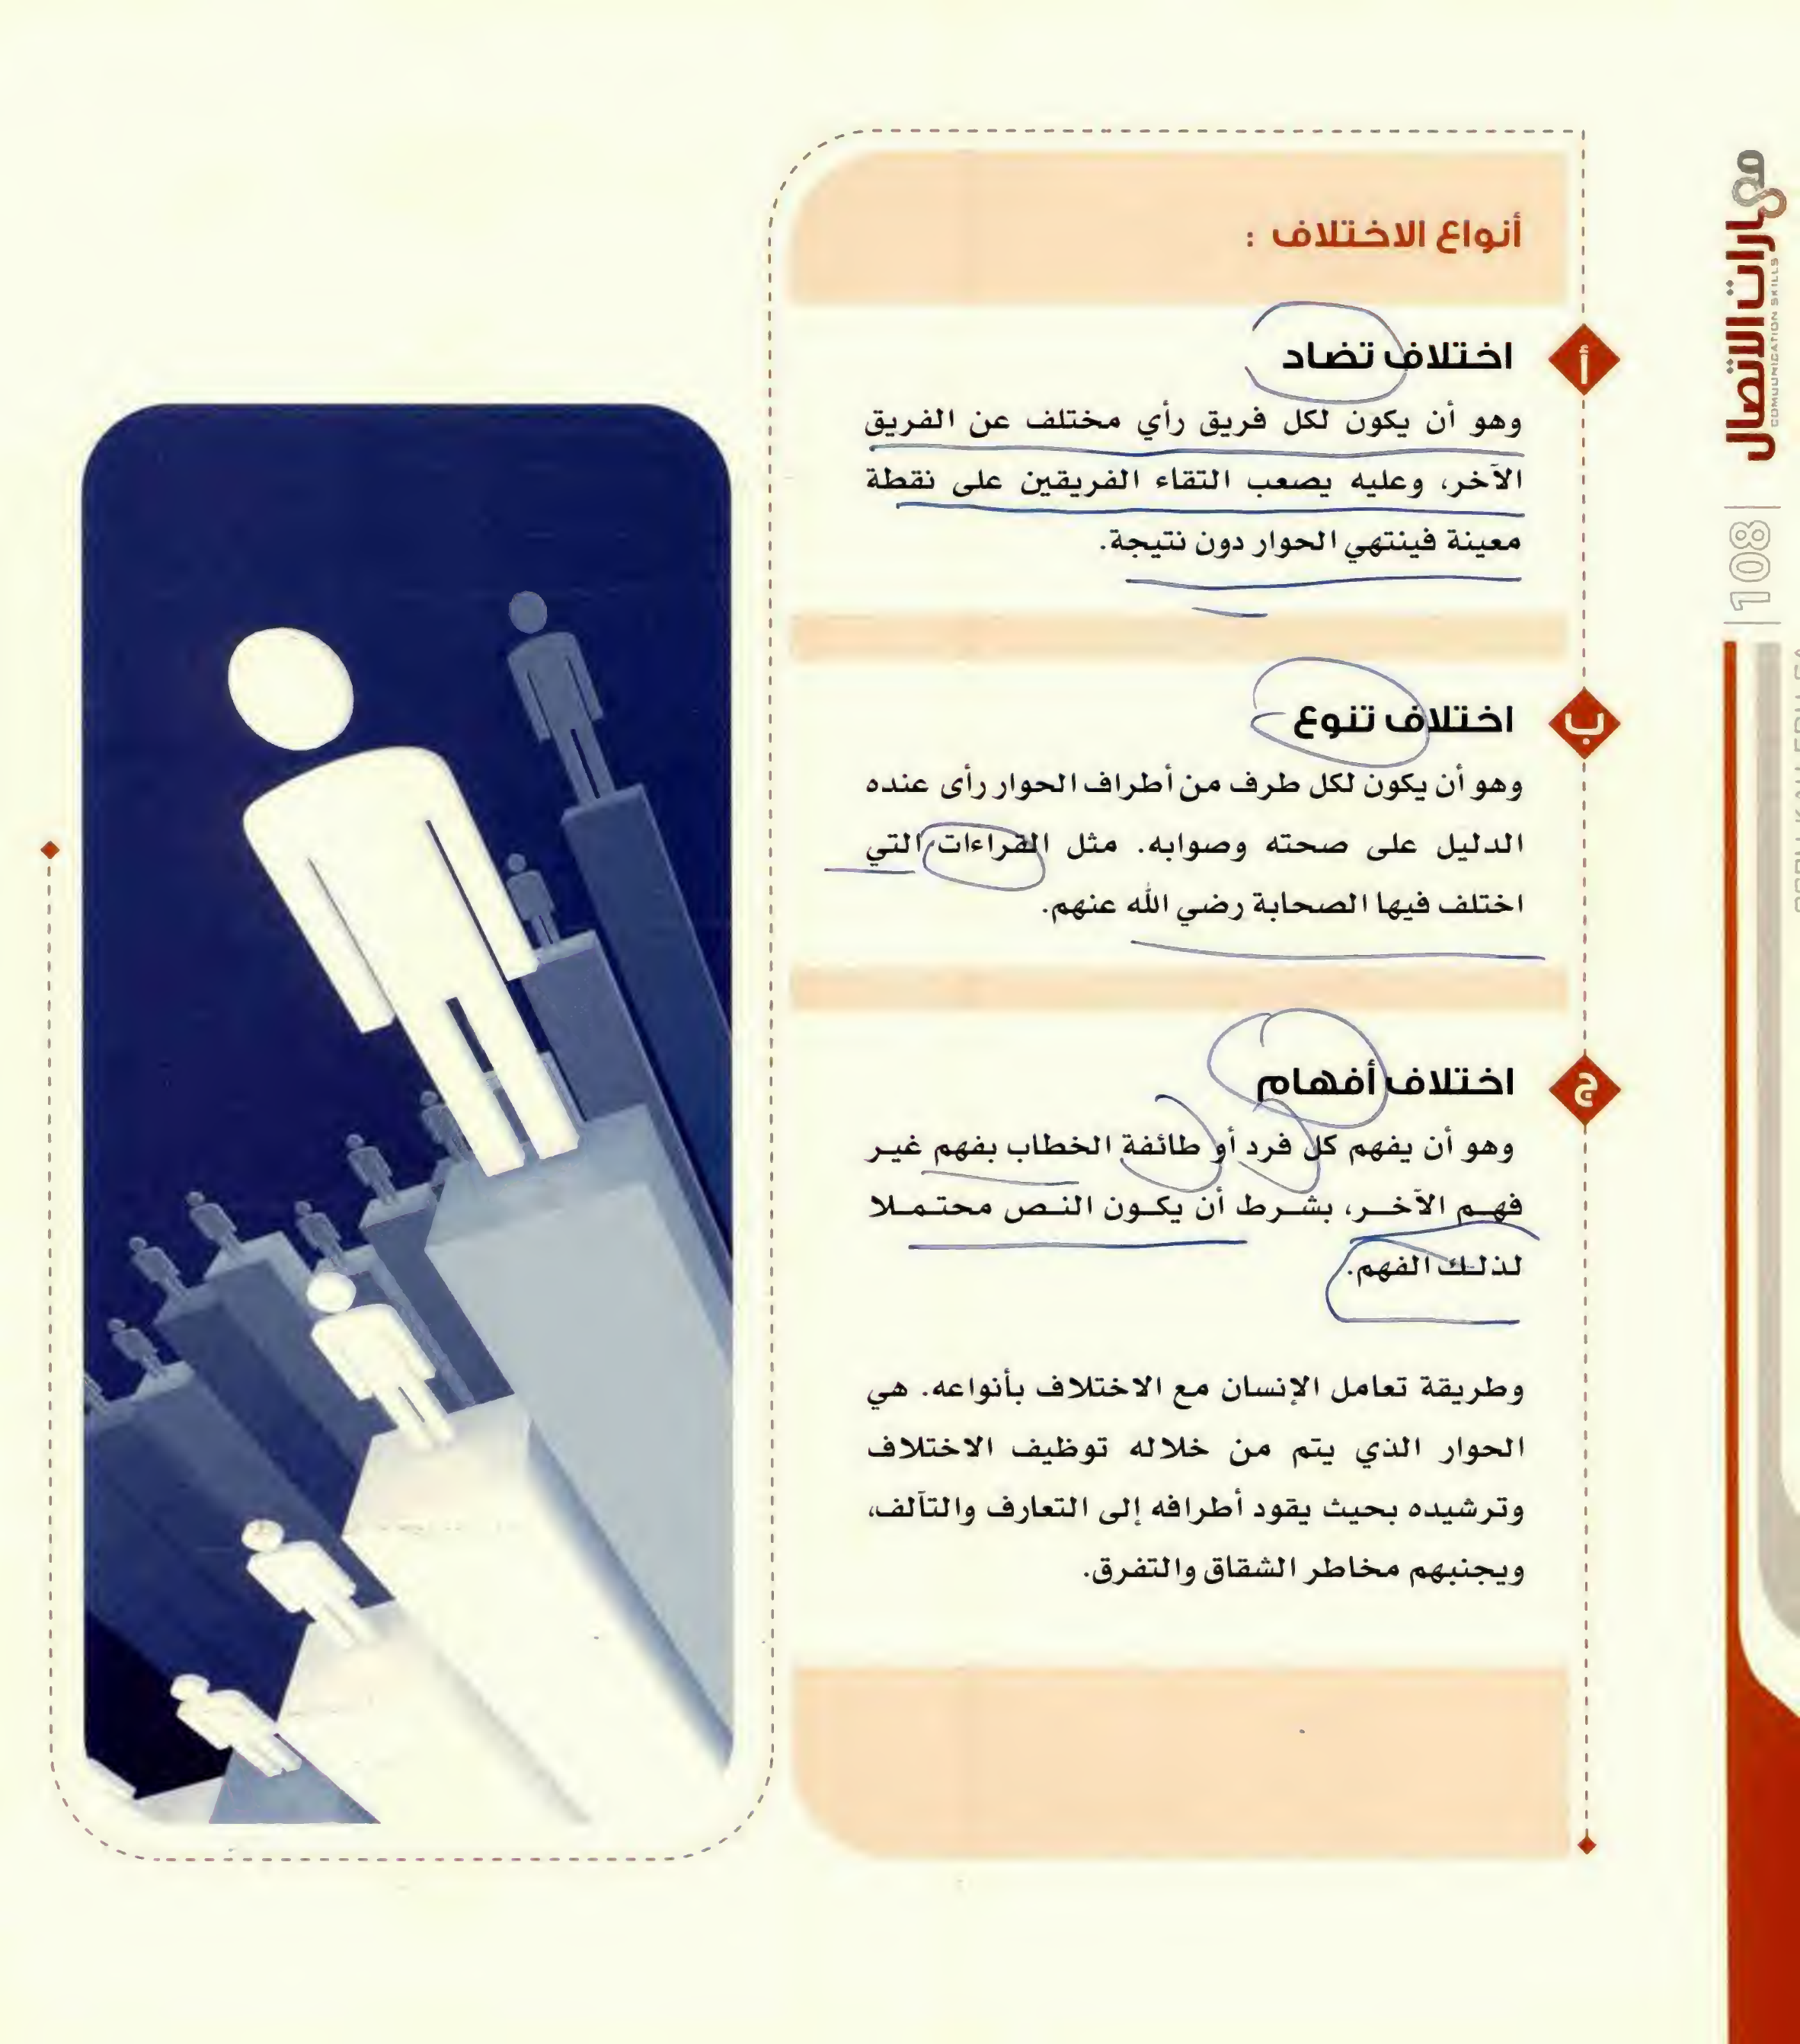 أنواع الاختلاف :
أ
اختلاف تضاد
وهو أن يكون لكل فريق رأي مختلف عن الفريق
الآخر، وعليه يصعب التقاء الفريقين على نقطة
معينة فينتهي الحوار دون نتيجة.
ب
اختلاف تنوع
وهو أن يكون لكل طرف من أطراف الحوار رأى عنده
الدليل على صحته وصوابه. مثل القراءات التي
اختلف فيها الصحابة رضي الله عنهم.
ج
اختلاف أفهام
وهو أن يفهم كل فرد أو طائفة الخطاب بفهم غير
فهم الآخر، بشرط أن يكون النص محتملا
لذلك الفهم.
وطريقة تعامل الإنسان مع الاختلاف بأنواعه. هي
الحوار الذي يتم من خلاله توظيف الاختلاف
وترشيده بحيث يقود أطرافه إلى التعارف والتآلف،
ويجنبهم مخاطر الشقاق والتفرق.
مهارات الاتصال
COMMUNICATION SKILLS
108